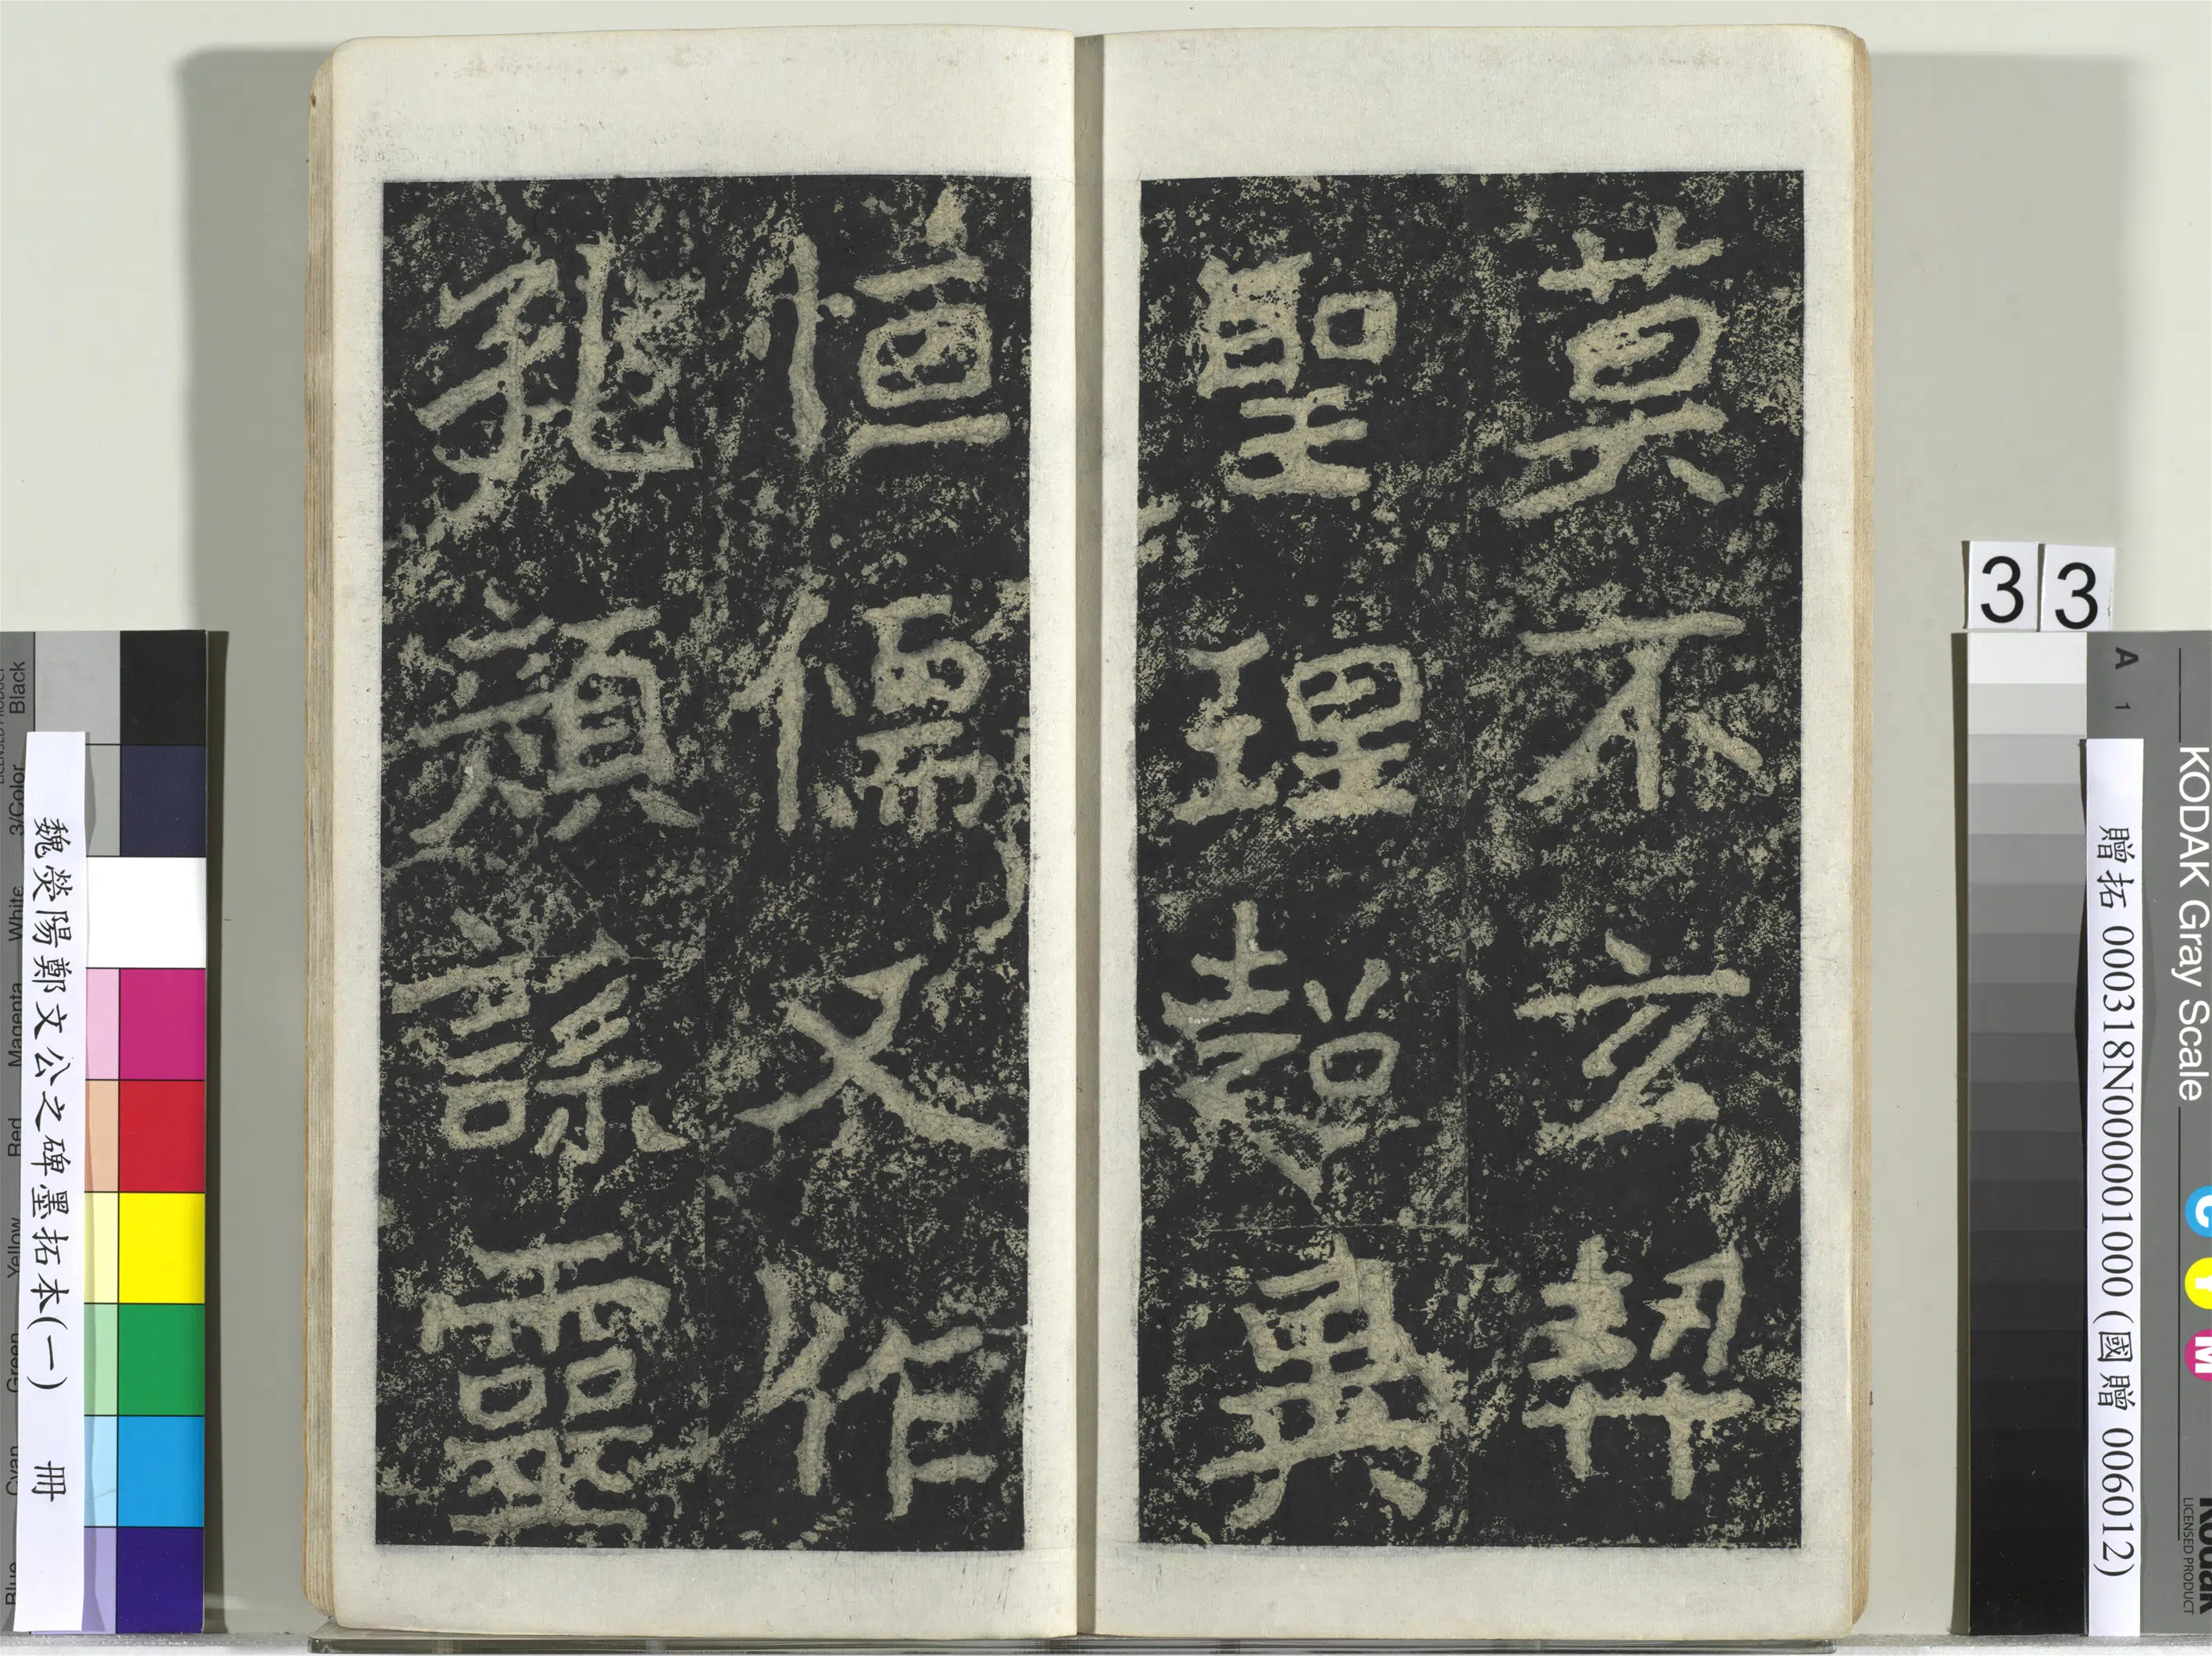 莫不玄契
聖理超異
恒儒又作
孔顏誄靈
33
贈拓 000318N000001000 (國贈 006012)
魏熒陽鄭文公之碑墨拓本(一) 冊
KODAK Gray Scale
A 1
C Y M
Kodak
LICENSED PRODUCT
Black
3/Color
White
Magenta
Red
Yellow
Green
Cyan
Blue